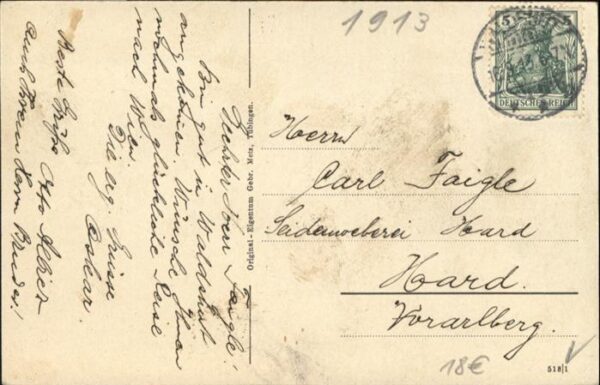 1913
5 5
DEUTSCHES REICH
Geehrter Herr Faigle!
Bin gut in Waldshut
angekommen. Wünsche Ihnen
nochmals glückliche Reise
nach Wien.
Die erg. Luise
Oskar.
Beste Grüße Otto
auch Ihrem Herrn Bruder!
Original-Eigentum Gebr. Metz, Tübingen.
Herrn
Carl Faigle
Seidenweberei Hard
Hard.
Vorarlberg.
18€
518|1